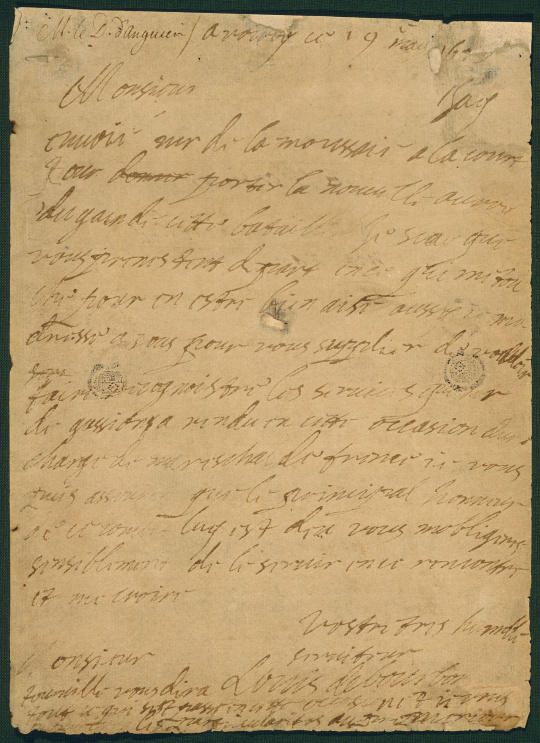 Mr le D. d'anguien / a rocroy ce 19 may 16
Monsieur
Jay
envoié mr de la moussaie a la court
pour donner porter la nouvelle au roy
du gain de cette bataille Je scay que
vous prenes tant de part en ce qui me
pour en estre bien aise aussy je
adresse a vous pour vous supplier de vouloir
faire recognoistre les services que mr
de gassion a rendu en cette occasion
charge de mareschal de france je vous
puis assurer que le principal honneur
de ce combat luy est deu vous mobligeres
sensiblement de le servir en ce rencontre
et me croire
Vostre tres humble
serviteur
Monsieur
Louis de bourbon
tourville vous dira
tout ce qui sest passé